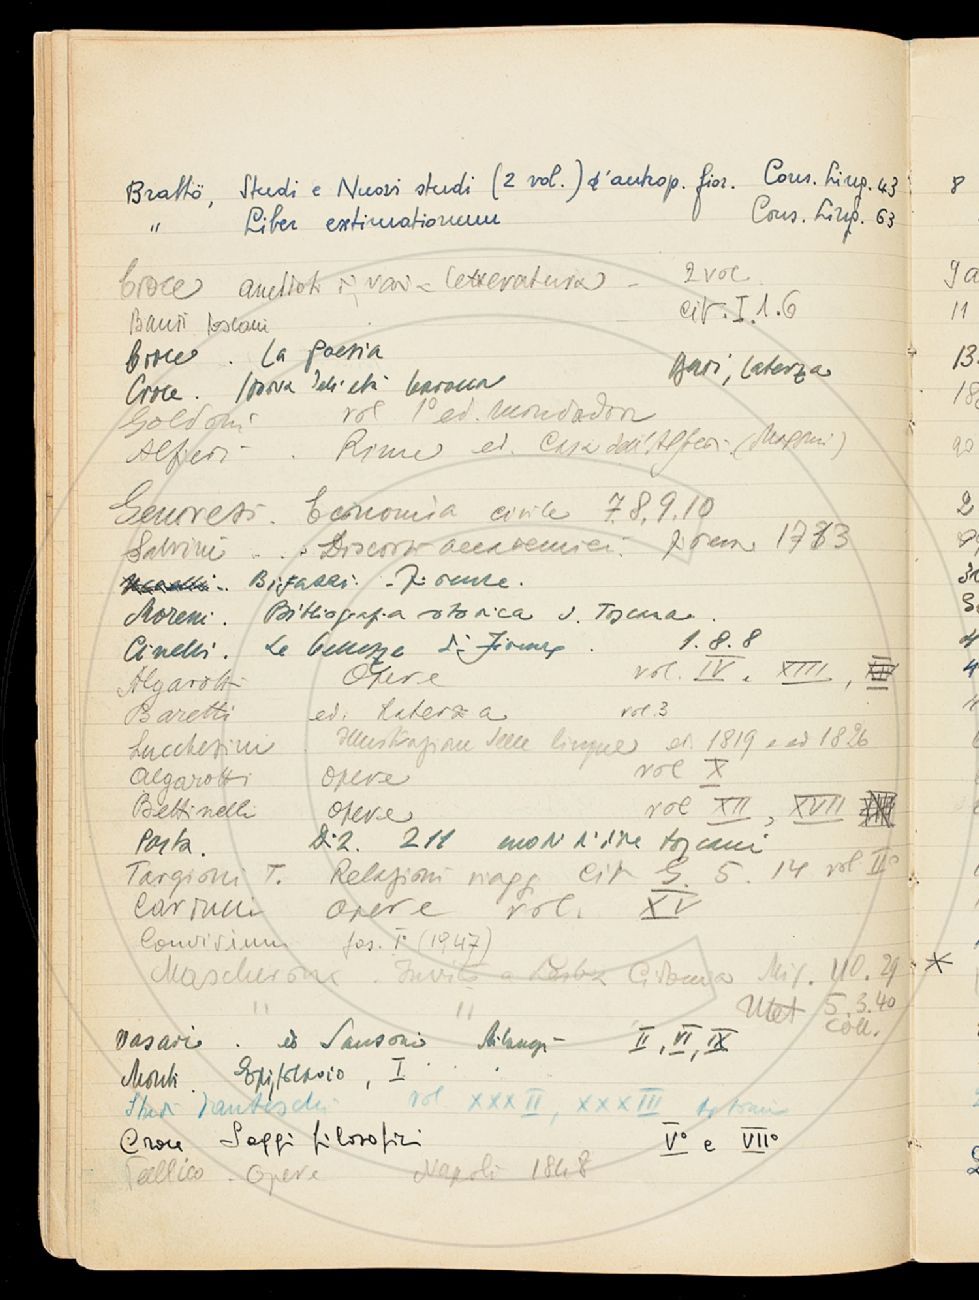 Brattö, Studi e Nuovi studi (2 vol.) d'antrop. fior. Cons. Ling. 43
" Liber extimationum Cons. Ling. 63
Croce aneddoti di varia letteratura - 2 vol.
Bandi toscani cit. I.1.6
Croce . La poesia
Croce. Storia dell'età barocca Bari, Laterza
Goldoni vol 1° ed. Mondadori
Alfieri . Rime ed. Casa dell'Alfieri. (Maggini)
Genovesi. Economia civile 7.8.9.10
Salvini . . Discorsi accademici. Firenze 1733
Bigazzi. Firenze.
Moreni. Bibliografia storica d. Toscana.
Cinelli. Le bellezze di Firenze . 1.8.8
Algarotti Opere vol. IV. XIII,
Baretti ed. Laterza vol. 3
Lucchesini Illustrazione delle lingue ed. 1819 e ed 1826
Algarotti opere vol X
Bettinelli Opere vol XII, XVII
Pasta. Diz. 211 modi di dire toscani
Targioni T. Relazioni viagg. Cit G. 5. 14 vol II°
Carducci opere vol. XV
Convivium fas. I° (1947)
Mascheroni . Invito a Lesbia Cidonia Mis. 110. 29
" " Met 5.3.40
coll.
Vasari . ed Sansoni Milanesi II, VI, IX
Monti Epistolario, I
Studi danteschi vol XXXII, XXXIII
Croce Saggi filosofici V° e VII°
Opere Napoli 1848